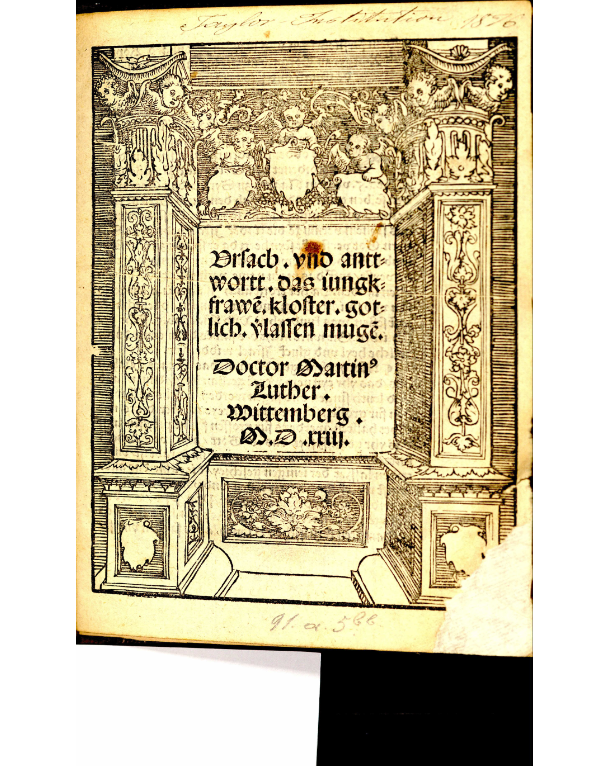 Taylor Institution 1876
Ursach . vnd antt⸗
wortt . das iungk⸗
frawē . kloster . got⸗
lich . v̄lassen mugē .
Doctor Martinꝰ
Luther .
Wittemberg .
M . D . xxiij .
91. a. 5⁶⁶